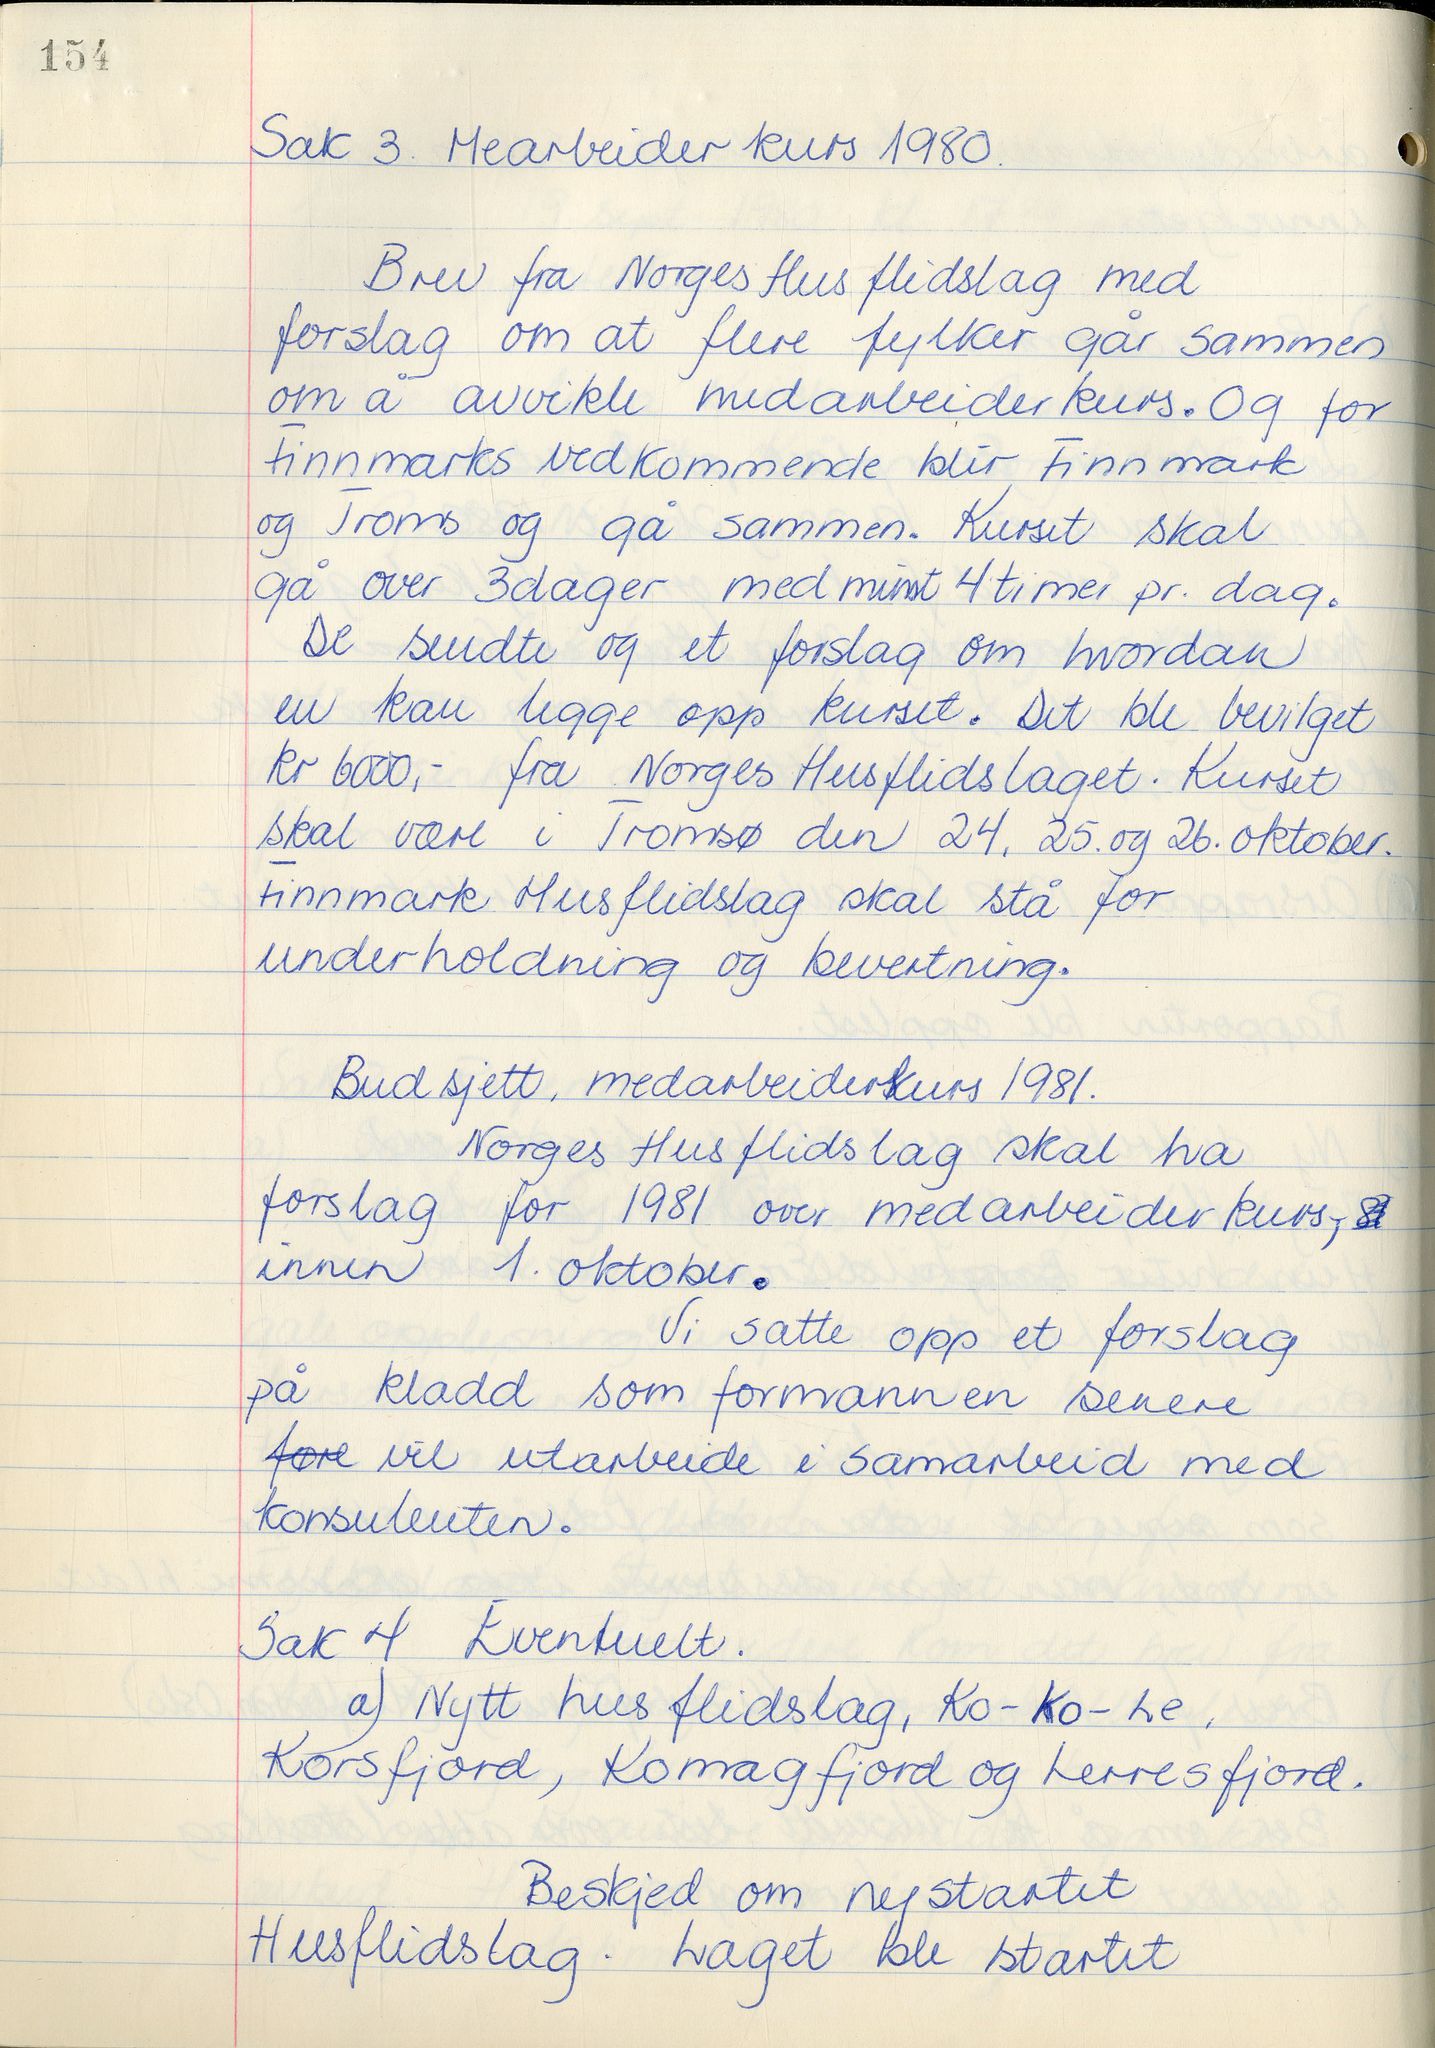 154
Sak 3. Mearbeider kurs 1980.
Brev fra Norges Husflidslag med
forslag om at flere fylker går sammen
om å avvikle medarbeiderkurs. Og for
Finnmarks vedkommende blir Finnmark
og Troms og gå sammen. Kurset skal
gå over 3 dager med minst 4 timer pr. dag.
De sendte og et forslag om hvordan
en kan legge opp kurset. Det ble bevilget
kr 6000,- fra Norges Husflidslaget. Kurset
skal være i Tromsø den 24. 25. og 26. oktober.
Finnmark Husflidslag skal stå for
underholdning og bevertning.
Budsjett, medarbeiderkurs 1981.
Norges Husflidslag skal ha
forslag for 1981 over medarbeiderkurs,
innen 1. oktober.
Vi satte opp et forslag
på kladd som formannen senere
føre vil utarbeide i samarbeid med
konsulenten.
Sak 4 Eventuelt.
a) Nytt husflidslag, Ko-Ko-Le,
Korsfjord, Komagfjord og Lerresfjord.
Beskjed om nystartet
Husflidslag. Laget ble startet